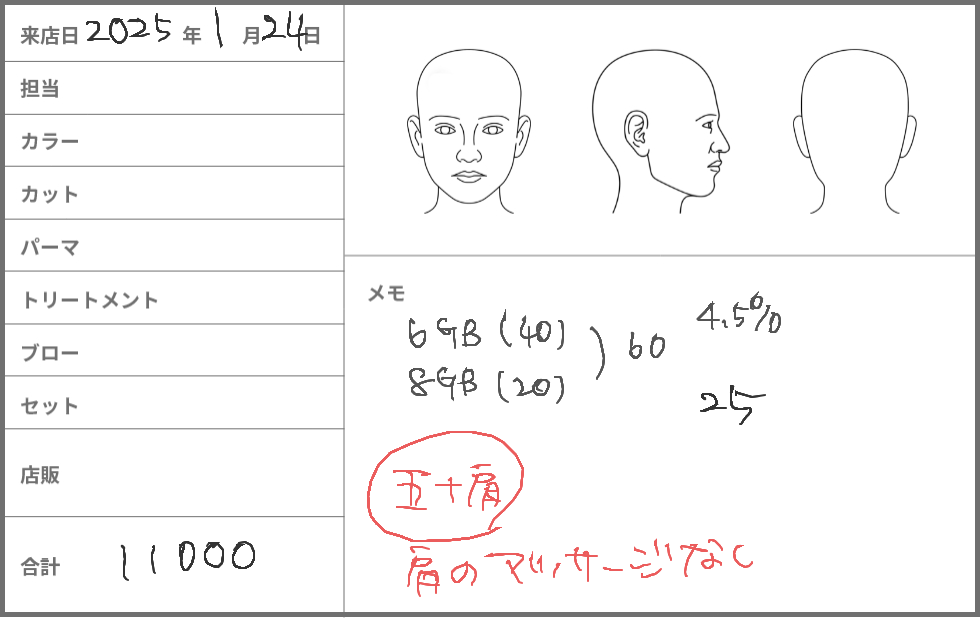 来店日 2025 年 1 月 24 日
担当
カラー
カット
パーマ
トリートメント
ブロー
セット
店販
合計 11000
メモ
6GB (40) ) 60 4.5%
8GB (20) 25
五十肩
肩のマッサージなし